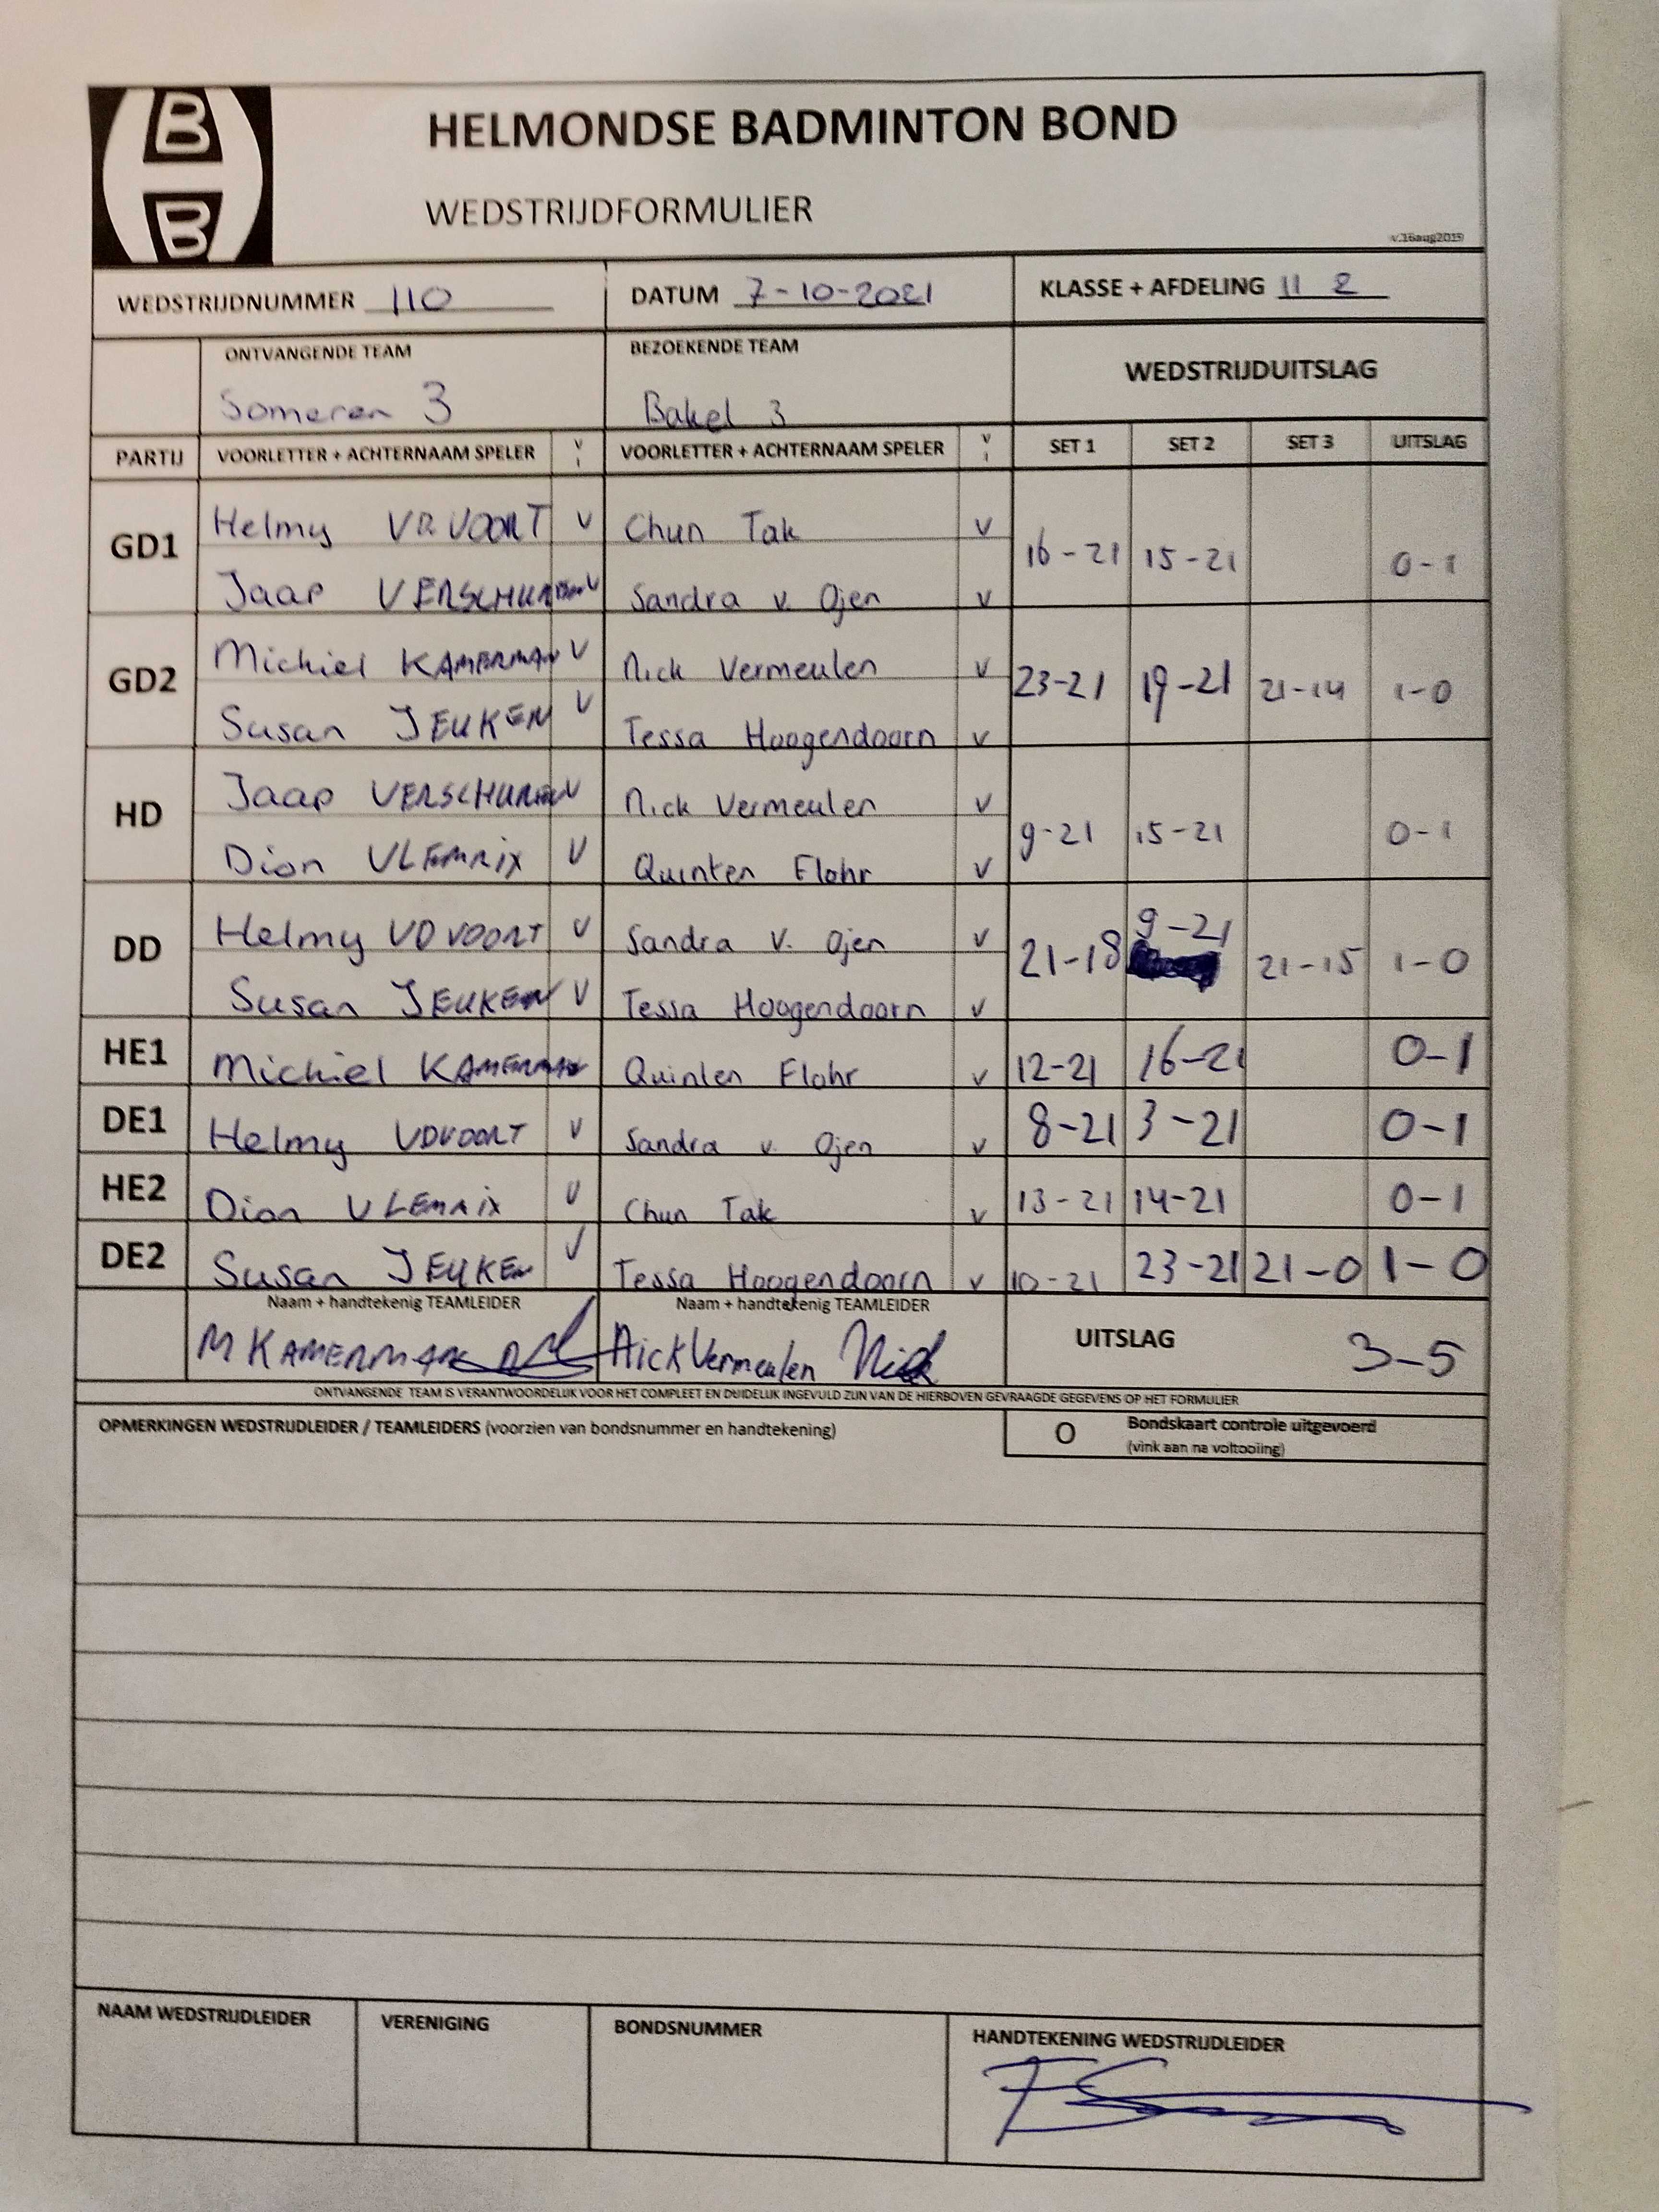 B
B
HELMONDSE BADMINTON BOND
WEDSTRIJDFORMULIER
v.16aug2019
WEDSTRIJDNUMMER 110 DATUM 7-10-2021 KLASSE + AFDELING II 2
ONTVANGENDE TEAM BEZOEKENDE TEAM WEDSTRIJDUITSLAG
Someren 3 Bakel 3
PARTIJ VOORLETTER + ACHTERNAAM SPELER V I VOORLETTER + ACHTERNAAM SPELER V I SET 1 SET 2 SET 3 UITSLAG
GD1 Helmy VR VOORT V Chun Tak V 16-21 15-21 0-1
Jaap VERSCHUREN V Sandra v. Ojen V
GD2 Michiel KAMERMAN V Nick Vermeulen V 23-21 19-21 21-14 1-0
Susan JEUKEN V Tessa Hoogendoorn V
HD Jaap VERSCHUREN V Nick Vermeulen V 9-21 15-21 0-1
Dion VLEMRIX V Quinten Flohr V
DD Helmy VD VOORT V Sandra v. Ojen V 21-18 9-21 21-15 1-0
Susan JEUKEN V Tessa Hoogendoorn V
HE1 Michiel KAMERMAN Quinten Flohr V 12-21 16-21 0-1
DE1 Helmy VDVOORT V Sandra v. Ojen V 8-21 3-21 0-1
HE2 Dion VLEMRIX V Chun Tak V 13-21 14-21 0-1
DE2 Susan JEUKEN V Tessa Hoogendoorn V 10-21 23-21 21-0 1-0
Naam + handtekenig TEAMLEIDER Naam + handtekenig TEAMLEIDER UITSLAG 3-5
M KAMERMAN Nick Vermeulen Nick
ONTVANGENDE TEAM IS VERANTWOORDELIJK VOOR HET COMPLEET EN DUIDELIJK INGEVULD ZIJN VAN DE HIERBOVEN GEVRAAGDE GEGEVENS OP HET FORMULIER
OPMERKINGEN WEDSTRIJDLEIDER / TEAMLEIDERS (voorzien van bondsnummer en handtekening) O Bondskaart controle uitgevoerd
(vink aan na voltooiing)
NAAM WEDSTRIJDLEIDER VERENIGING BONDSNUMMER HANDTEKENING WEDSTRIJDLEIDER